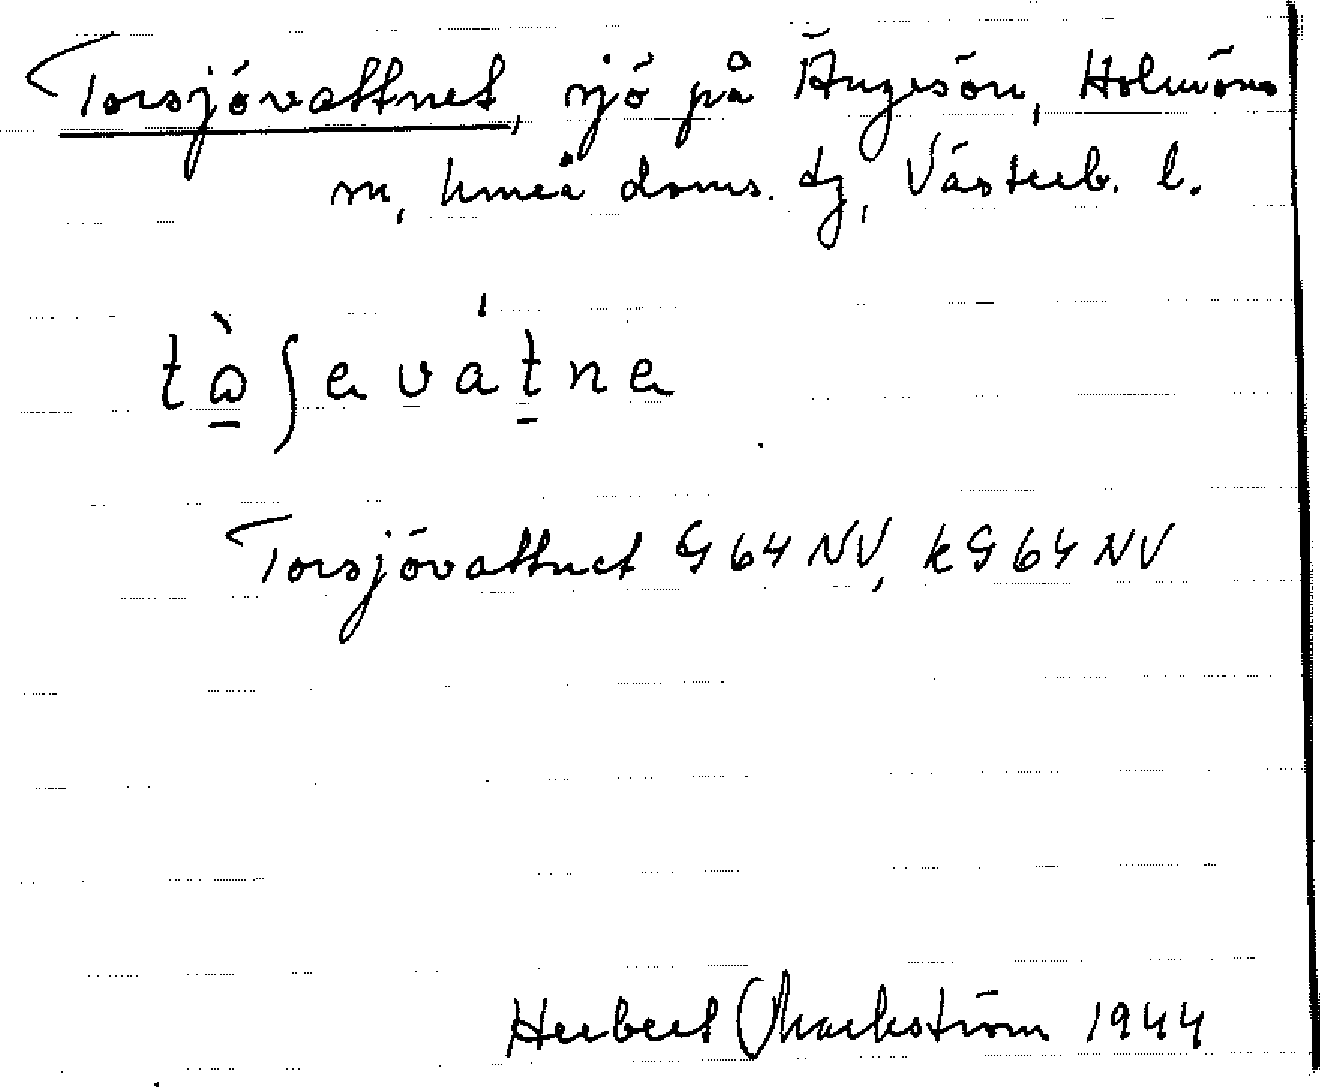 Torsjövattnet, sjö på Ängesön, Holmöns
sn, Umeå doms. tg, Västerb. l.
tɷ̀ʃeváʹtne
Torsjövattnet G 64 NV, kG 64 NV
Herbert Markström 1944